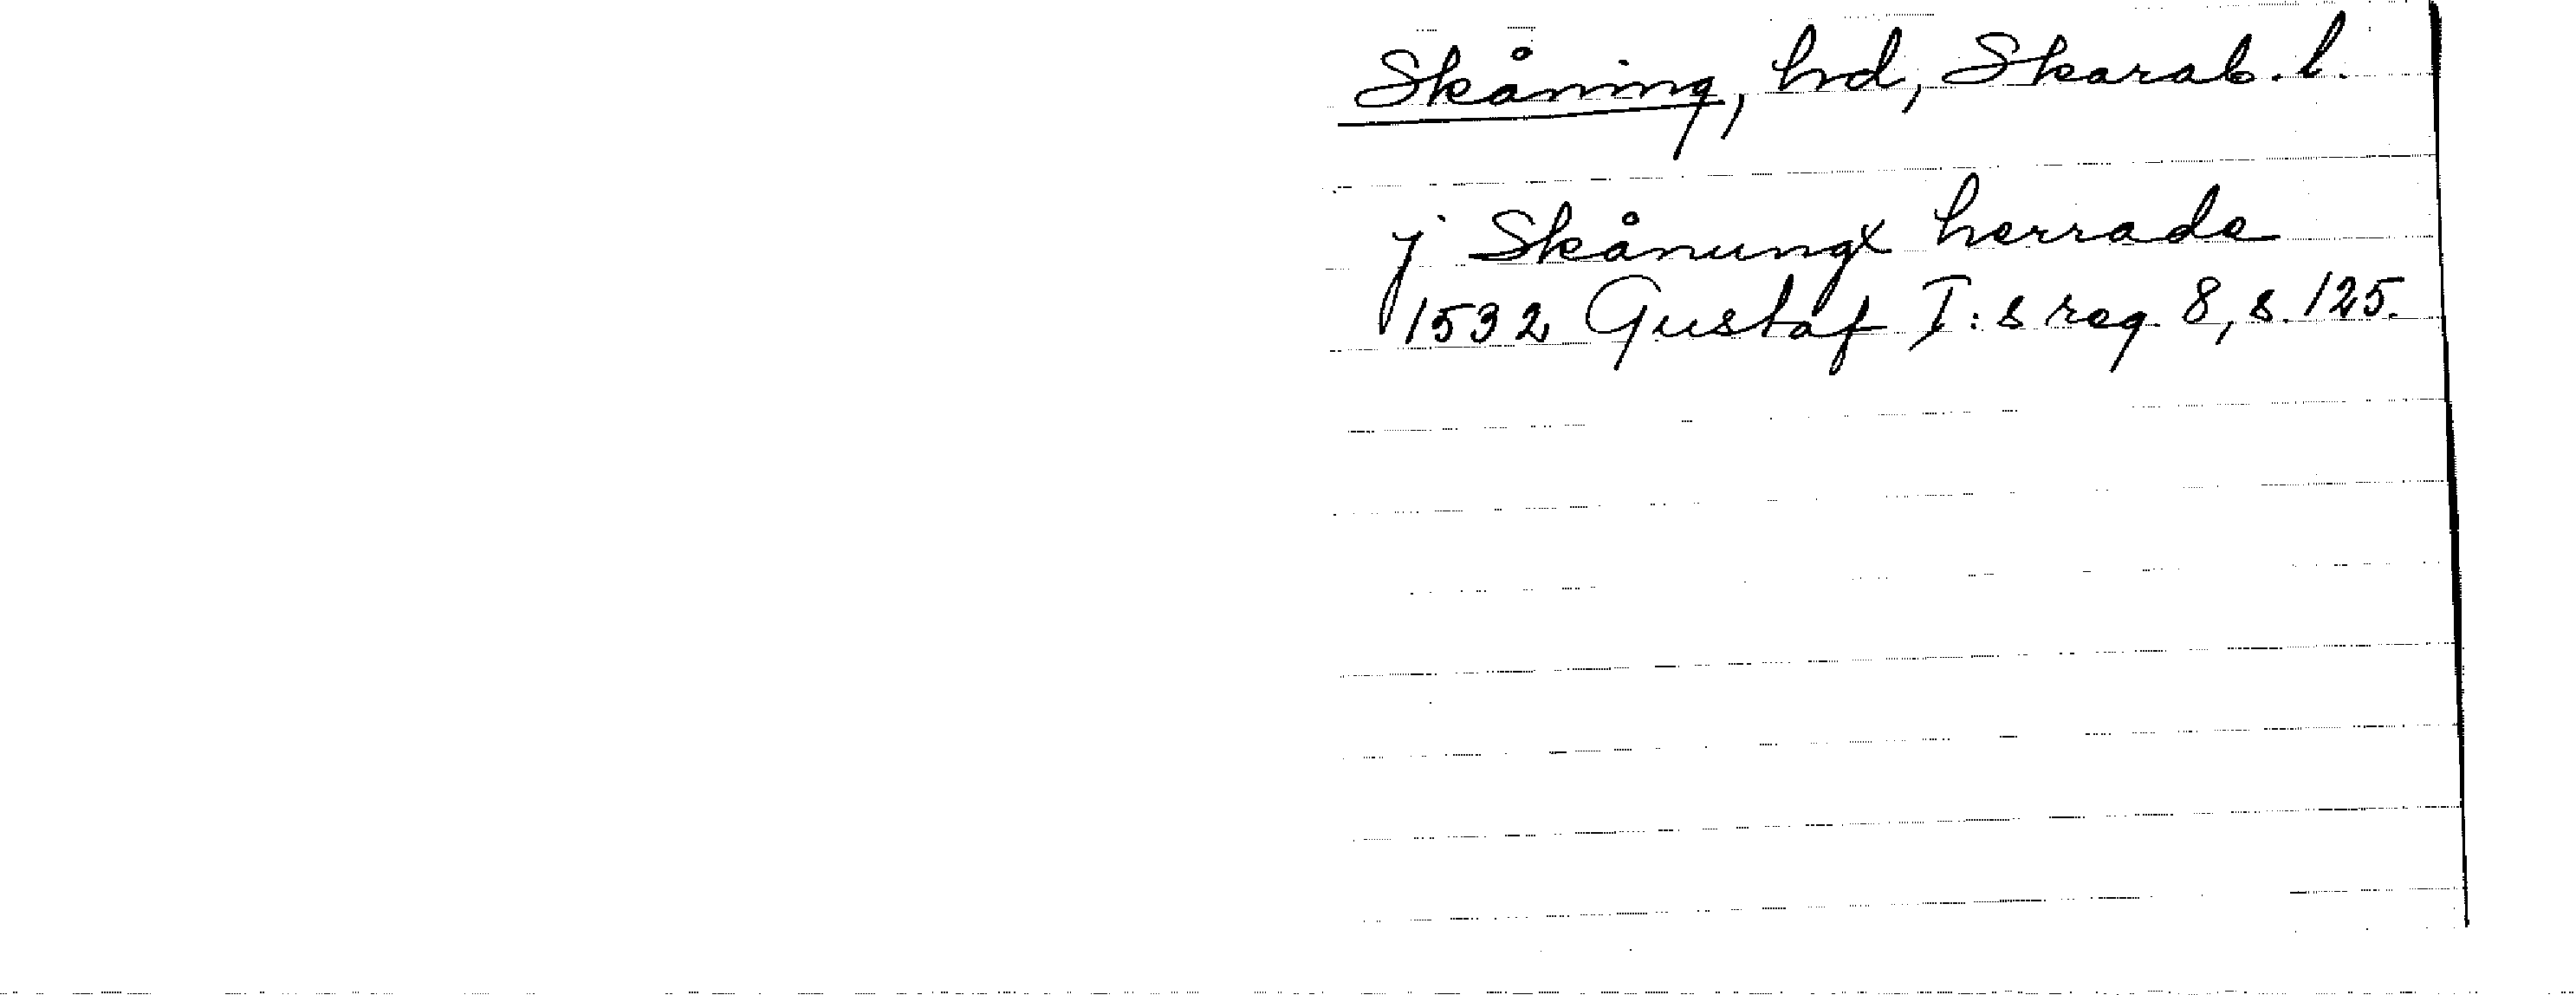 Skåning, hd, Skarab. l.
j Skånungx herrade
1532 Gustaf I:s reg. 8, s. 125.